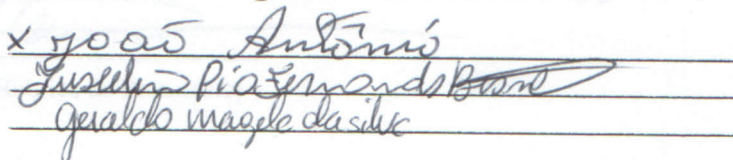 x João Antônio
Juscelino Pio Fernands
geraldo magela da silva